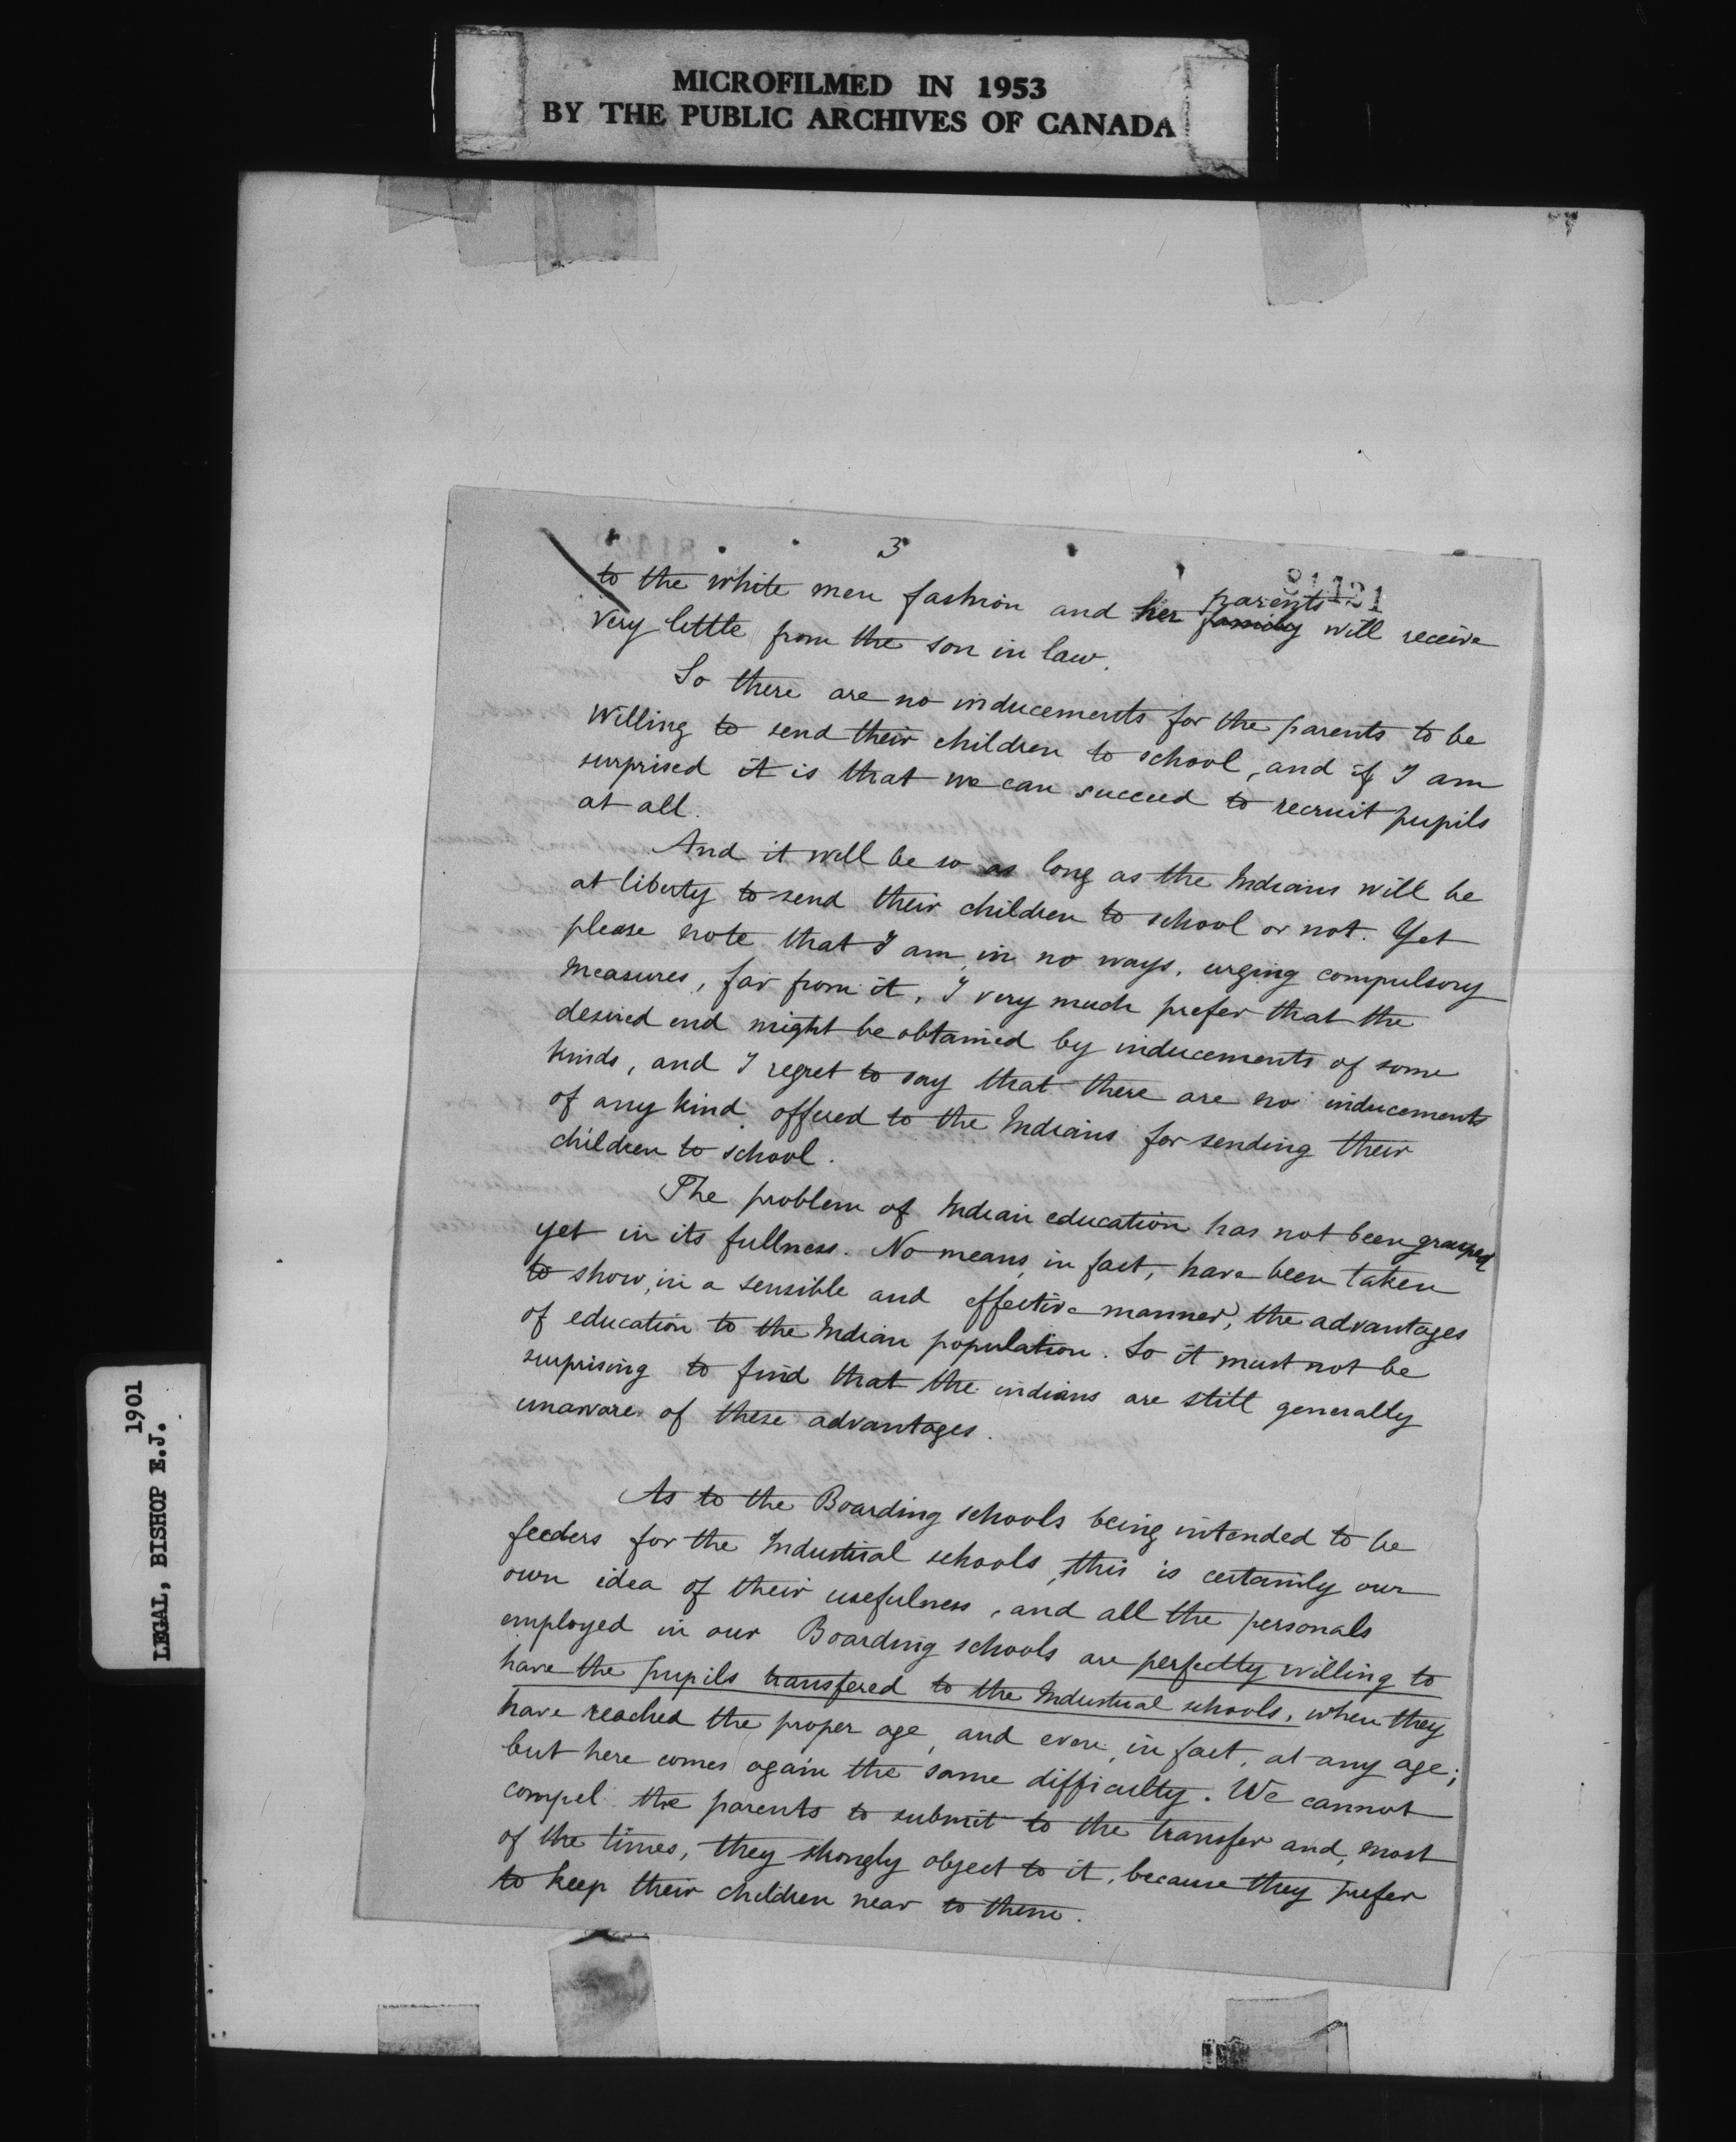 MICROFILMED IN 1953
BY THE PUBLIC ARCHIVES OF CANADA
3
81421
to the white men fashion and her family parents will receive
very little from the son in law.
So there are no inducements for the parents to be
willing to send their children to school, and if I am
surprised it is that we can succeed to recruit pupils
at all.
And it will be so as long as the Indians will be
at liberty to send their children to school or not. Yet
please note that I am, in no ways, urging compulsory
measures, far from it, I very much prefer that the
desired end might be obtained by inducements of some
kinds, and I regret to say that there are no inducements
of any kind offered to the Indians for sending their
children to school.
The problem of Indian education has not been grasped
yet in its fullness. No means, in fact, have been taken
to show, in a sensible and effective manner, the advantages
of education to the Indian population. So it must not be
surprising to find that the indians are still generally
unaware of these advantages.
As to the Boarding schools being intended to be
feeders for the Industrial schools, this is certainly our
own idea of their usefulness, and all the personals
employed in our Boarding schools are perfectly willing to
have the pupils transfered to the Industrial schools, when they
have reached the proper age, and even, in fact, at any age;
but here comes again the same difficulty. We cannot
compel the parents to submit to the transfer and, most
of the times, they strongly object to it, because they prefer
to keep their children near to them.
LEGAL, BISHOP E.J.
1901